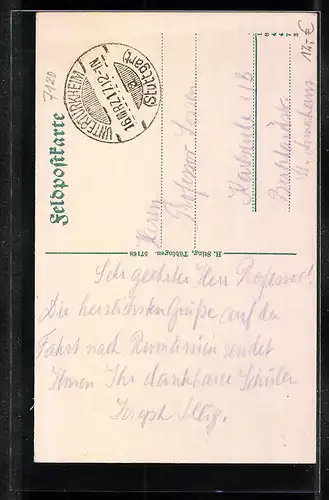 7120
12,-€
Feldpostkarte
UNTERTÜRKHEIM
16.MRZ.17.12-1N
(Stuttgart)
Herrn
Professor
Karlsruhe i/B
H. Sting, Tübingen. 57168
Sehr geehrter Herr Professor!
Die herzlichsten Grüße auf der
Fahrt nach Rumänien sendet
Ihnen Ihr dankbarer Schüler
Joseph Illig.